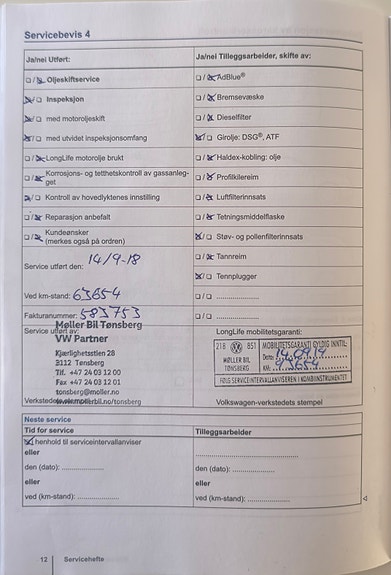 Servicebevis 4
Ja/nei Utført:
Ja/nei Tilleggsarbeider, skifte av:
Oljeskiftservice
AdBlue®
Inspeksjon
Bremsevæske
med motoroljeskift
Dieselfilter
med utvidet inspeksjonsomfang
Girolje: DSG®, ATF
LongLife motorolje brukt
Haldex-kobling: olje
Korrosjons- og tetthetskontroll av gassanleg-
get
Profilkilereim
Kontroll av hovedlyktenes innstilling
Luftfilterinnsats
Reparasjon anbefalt
Tetningsmiddelflaske
Kundeønsker
(merkes også på ordren)
Støv- og pollenfilterinnsats
Tannreim
Service utført den: 14/9-18
Tennplugger
Ved km-stand: 63654
Fakturanummer: 583753
Service utført av:
LongLife mobilitetsgaranti:
Møller Bil Tønsberg
VW Partner
Kjærlighetsstien 28
3112 Tønsberg
Tlf. +47 24 03 12 00
Fax +47 24 03 12 01
tonsberg@moller.no
www.mollerbil.no/tonsberg
218 BST
MØLLER BIL
TØNSBERG
MOBILITETSGARANTI GYLDIG INNTIL:
Dato: 14.09.19
KM:
FØLG SERVICEINTERVALLANVISEREN I KOMBIINSTRUMENTET
Volkswagen-verkstedets stempel
Neste service
Tid for service
Tilleggsarbeider
henhold til serviceintervallanviser
eller
den (dato):
den (dato):
eller
eller
ved (km-stand):
ved (km-stand):
12 Servicehefte